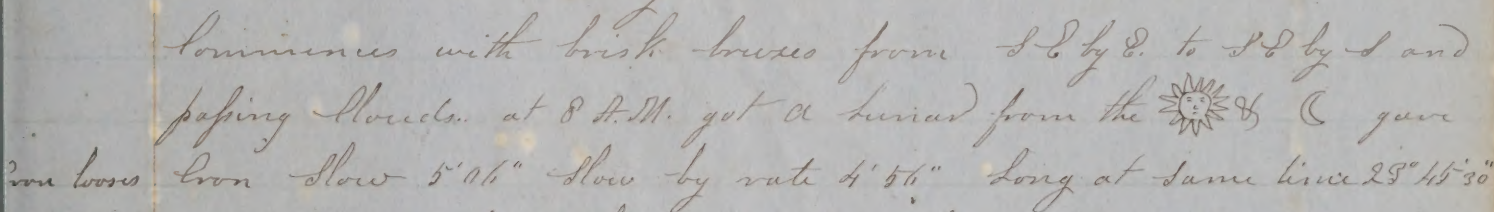 Commences with brisk breezes from S E by E. to S E by S and
passing Clouds. at 8 A.M. got a Lunar from the ☀ & ☾ gave
Cron looses Cron Slow 5' 06" Slow by rate 4' 56" Long at same time 23° 45' 30"